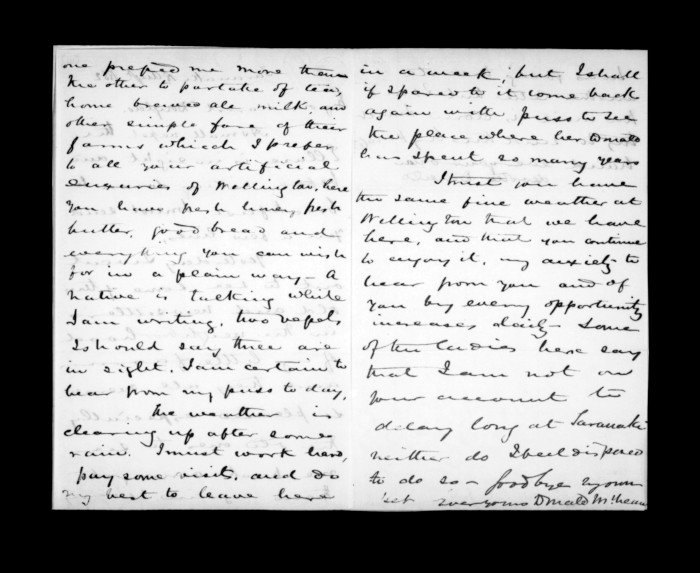 one prefered me more than
the other to partake of tea,
home brewed ale, milk, and
other simple fare of their
farms which I prefer
to all your artificial
luxuries of Wellington, here
you have fresh honey, fresh
butter, good bread and
everything you can wish
for in a plain way— A
native is talking while
I am writing, two vessels
I should say three are
in sight. I am certain to
hear from my puss to day,
The weather is
clearing up after some
rain. I must work hard,
pay some visits, and do
my best to leave here
in a week, but I shall
if spared to it come back
again with puss to see
the place where her Donald
has spent so many years
I trust you have
the same fine weather at
Wellington that we have
here, and that you continue
to enjoy it, my anxiety to
hear from you and of
you by every opportunity
increases daily— Some
of the ladies here say
that I am not on
your account to
delay long at Taranaki
neither do I feel disposed
to do so— Goodbye my own
pet ever yours Donald McLean